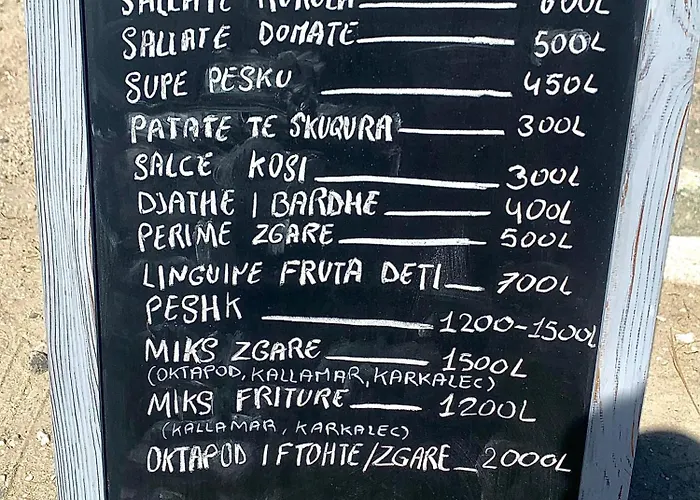 SALLATE RUKOLA 600L
SALLATE DOMATE 500L
SUPE PESKU 450L
PATATE TE SKUQURA 300L
SALCE KOSI 300L
DJATHE I BARDHE 400L
PERIME ZGARE 500L
LINGUINE FRUTA DETI 700L
PESHK 1200-1500L
MIKS ZGARE 1500L
(OKTAPOD, KALLAMAR, KARKALEC)
MIKS FRITURE 1200L
(KALLAMAR, KARKALEC)
OKTAPOD I FTOHTE/ZGARE 2000L